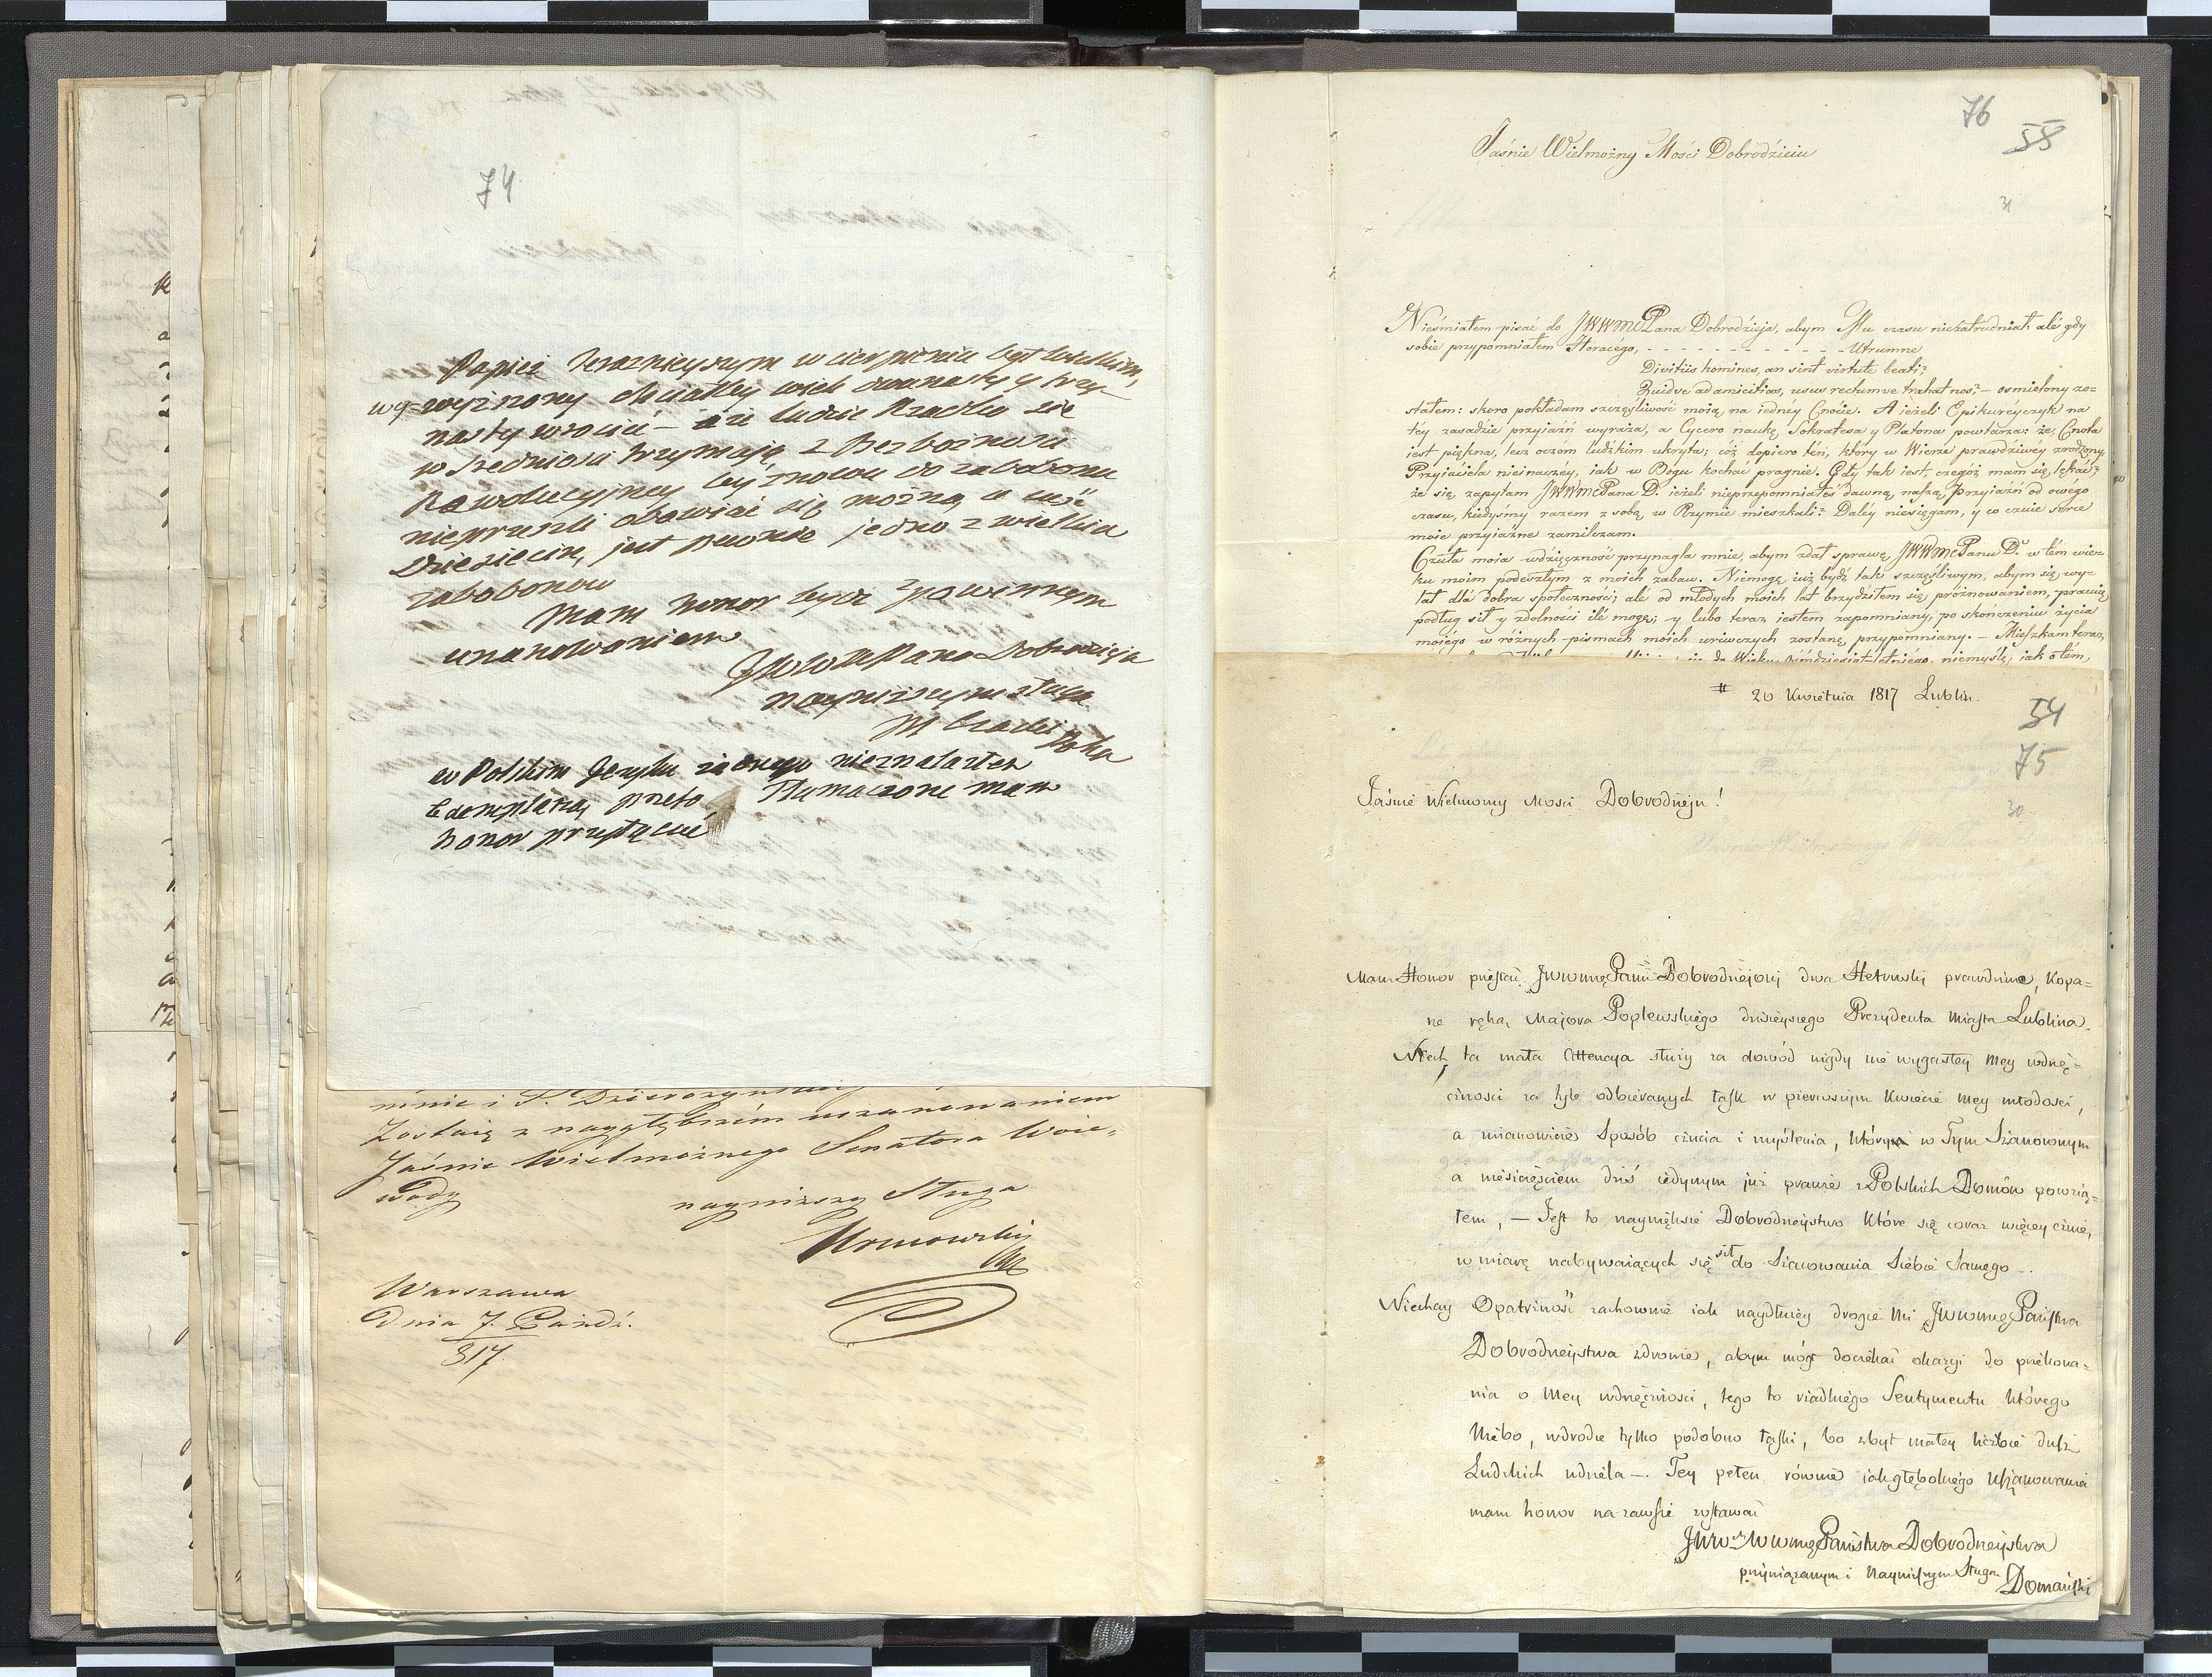 74
Papież teraznieyszym w cierpieniu był wielkim,
wyżnony chciałby wiek dwanasty y trzy-
nasty wrocić – że ludzie rzadko się
w średniosci trzymają z Bezbożnosci
Rewolucyjney by znowu do zabobonu
nieprzeszli obawiać się można a
Dziesięcin, jest pewnie jedno z wielkich
zabobonow
Mam honor bydź z powinnym
uszanowaniem
JWWMPana Dobrodzieja
nayniższym sługą
w Polskim Języku żadnego nieznalazłem
Exemplarza, przeto Tłumaczone mam
honor przyłączyć
mnie i
Zostaię z naygłębszém uszanowaniem
Jaśnie Wielmożnego Senatora Woie-
wody
nayniższy Sługa
Warszawa
dnia 7. Paźdź.
817.
76
58
Jaśnie Wielmożny Mości Dobrodzieiu
31
Nieśmiałem pisać do JWWMCPana Dobrodzieja, abym Mu czasu niezatrudniał, ale gdy
sobie przypomniałem Horacego, - - - - - - - - - - - Utrumne
Divitiis homines, an sint virtute beati?
Quidve ad amicitias, usus rectumve trahat nos? – osmielony zo-
stałem: skoro pokładam szczęśliwość moią na iedney Cnocie. A ieżeli Epikureyczyk na
téy zasadzie przyiaźń wyraża, a Cycero naukę Sokratesa y Platona powtarza: że, Cnota
iest piękna, lecz oczóm ludzkim ukryta; cóż dopiero tén, który w Wierze prawdziwéy zrodzony,
Przyiaciela nieinaczéy, iak w Bogu kochać pragnie. Gdy tak iest, czegóż mam się lękać?
że się zapytam JWWMCPana D. ieżeli nieprzepomniałeś dawną naszą przyiaźń od owégo
czasu, kiedyśmy razem z sobą w Rzymie mieszkali? Daléy niesięgam, y co czuie serce
moie przyiaźne zamilczam.
Czuła moia wdzięczność przynagla mnie, abym zdał sprawę JWWMCPanu D. w tém wie-
ku moim podeszłym z moich zabaw. Niemogę iuż bydź tak szczęśliwym, abym się wy-
lał dla dobra społeczności; ale od młodych moich lat brzydziłem się próżnowaniem, pracuię
podług sił y zdolności ile mogę; y lubo teraz iestem zapomniany, po skończeniu życia
moiégo w różnych pismach moich uriwczych zostanę przypomniany. – Mieszkam teraz
do Wieku ośmdziesiąt-letniégo, niemyślę, iak o tém,
20 Kwietnia 1817 Lublin.
54
75
30
Jaśnie Wielmożny Mości Dobrodzieju!
Mam Honor przesłać JWWMcPani Dobrodziejowej dwa Hetruski prawdziwe, kopa-
ne ręką Majora Poplewskiego dzisieyszego Prezydenta Miasta Lublina.
Niech ta mała Attencya służy za dowód nigdy nie wygasłey mey wdzię-
czności za tyle odbieranych łask w pierwszym kwiecie mey młodości,
a mianowicie Sposób czucia i myślenia, który w Tym Szanownym
a nieszczęściem dziś iedynym już prawie z Polskich Domów powzią-
łem, — Jest to naywiększe Dobrodzieystwo które się coraz więcey czuie,
w miarę nabywaiących się sił do Szacowania Siebie Samego -.
Niechay Opatrzność zachowuie iak naydłużey drogie Mi JWWMcPaństwa
Dobrodzieystwa zdrowie, abym mógł doczekać okazyi do przekona-
nia o Mey wdzięczności, tego to rzadkiego Sentymentu którego
Niebo, wdrodze tylko podobno łaski, bo zbyt małey liczbie dusz
Ludzkich udziela –. Tey pełen równie iak głębokiego Uszanowania
mam honor na zawsze zostawać
JWW WWMcPaństwa Dobrodzieystwa
przywiązanym i Nayniższym Sługą
Domański